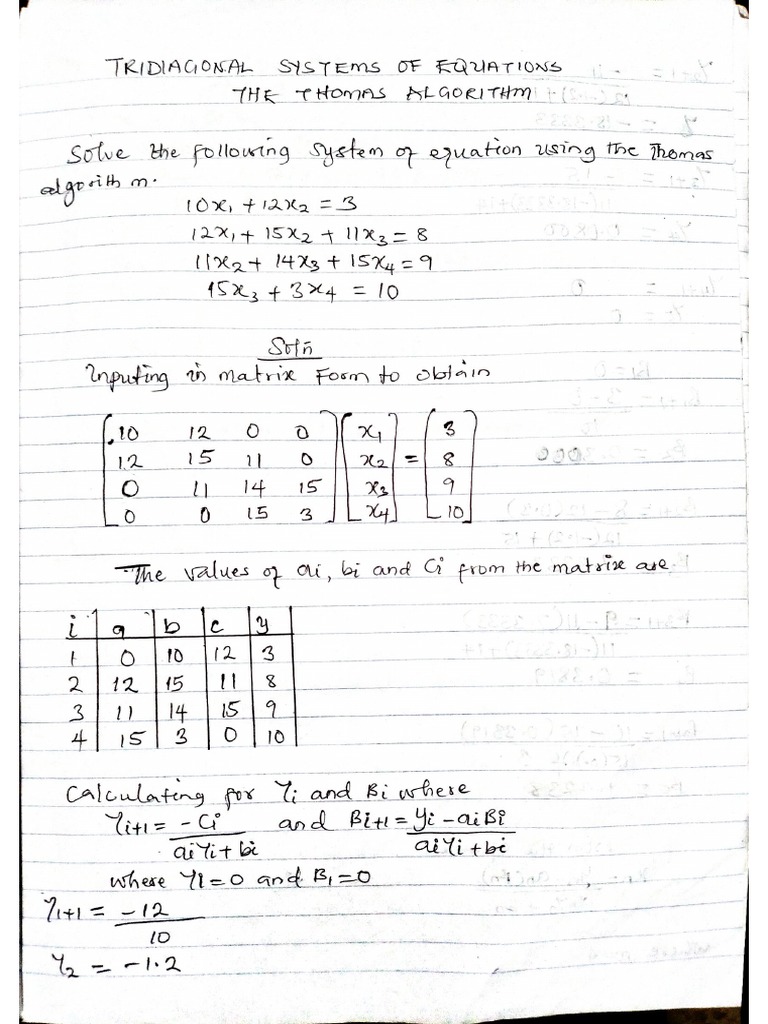 TRIDIAGONAL SYSTEMS OF EQUATIONS
THE THOMAS ALGORITHM
Solve the following system of equation using the Thomas
algorithm.
10x₁ + 12x₂ = 3
12x₁ + 15x₂ + 11x₃ = 8
11x₂ + 14x₃ + 15x₄ = 9
15x₃ + 3x₄ = 10
Soln
Inputing in matrix Form to obtain
10 12 0 0 x₁ 3
12 15 11 0 x₂ = 8
0 11 14 15 x₃ 9
0 0 15 3 x₄ 10
The values of ai, bi and Ci from the matrix are
i a b c y
1 0 10 12 3
2 12 15 11 8
3 11 14 15 9
4 15 3 0 10
Calculating for γi and Bi where
γi+1 = -Ci / aiγi + bi and Bi+1 = yi - aiBi / aiγi + bi
where γ1 = 0 and B₁ = 0
γ1+1 = -12 / 10
γ₂ = -1.2